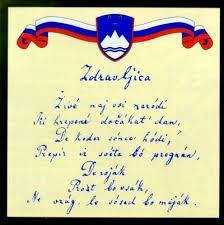 Zdravljica
Živé naj vsi naródi
Ki hrepené dočákat' dan,
De koder sónce hódi,
Prepír iz svéta bo pregnán,
De roják
Prost bo vsák,
Ne vrag, le sósed bo meják.